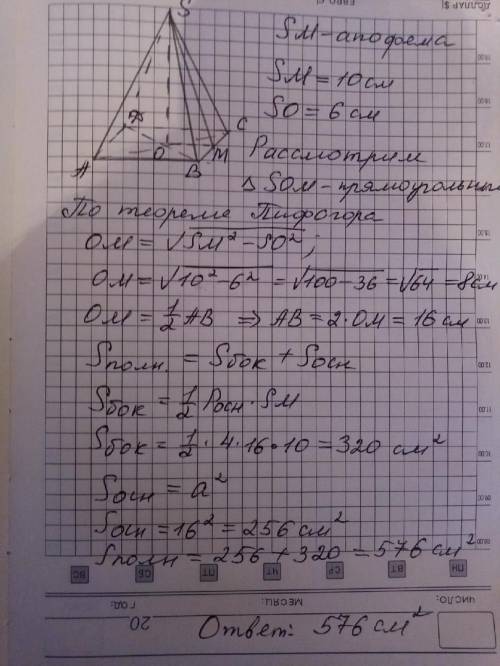 S
A
B
C
O
M
SM - апофема
SM = 10 см
SO = 6 см
Рассмотрим
△ SOM - прямоугольный
По теореме Пифогора
OM = √SM² - SO² ;
OM = √10² - 6² = √100 - 36 = √64 = 8см
OM = 1/2 AB ⇒ AB = 2 · OM = 16 см
Sполн. = Sбок + Sосн
Sбок = 1/2 Pосн · SM
Sбок = 1/2 · 4 · 16 · 10 = 320 см²
Sосн = a²
Sосн = 16² = 256 см²
Sполн = 256 + 320 = 576 см²
ВС СБ ПТ ЧТ СР ВТ ПН
ГОД: МЕСЯЦ: ЧИСЛО:
20
Ответ: 576 см²